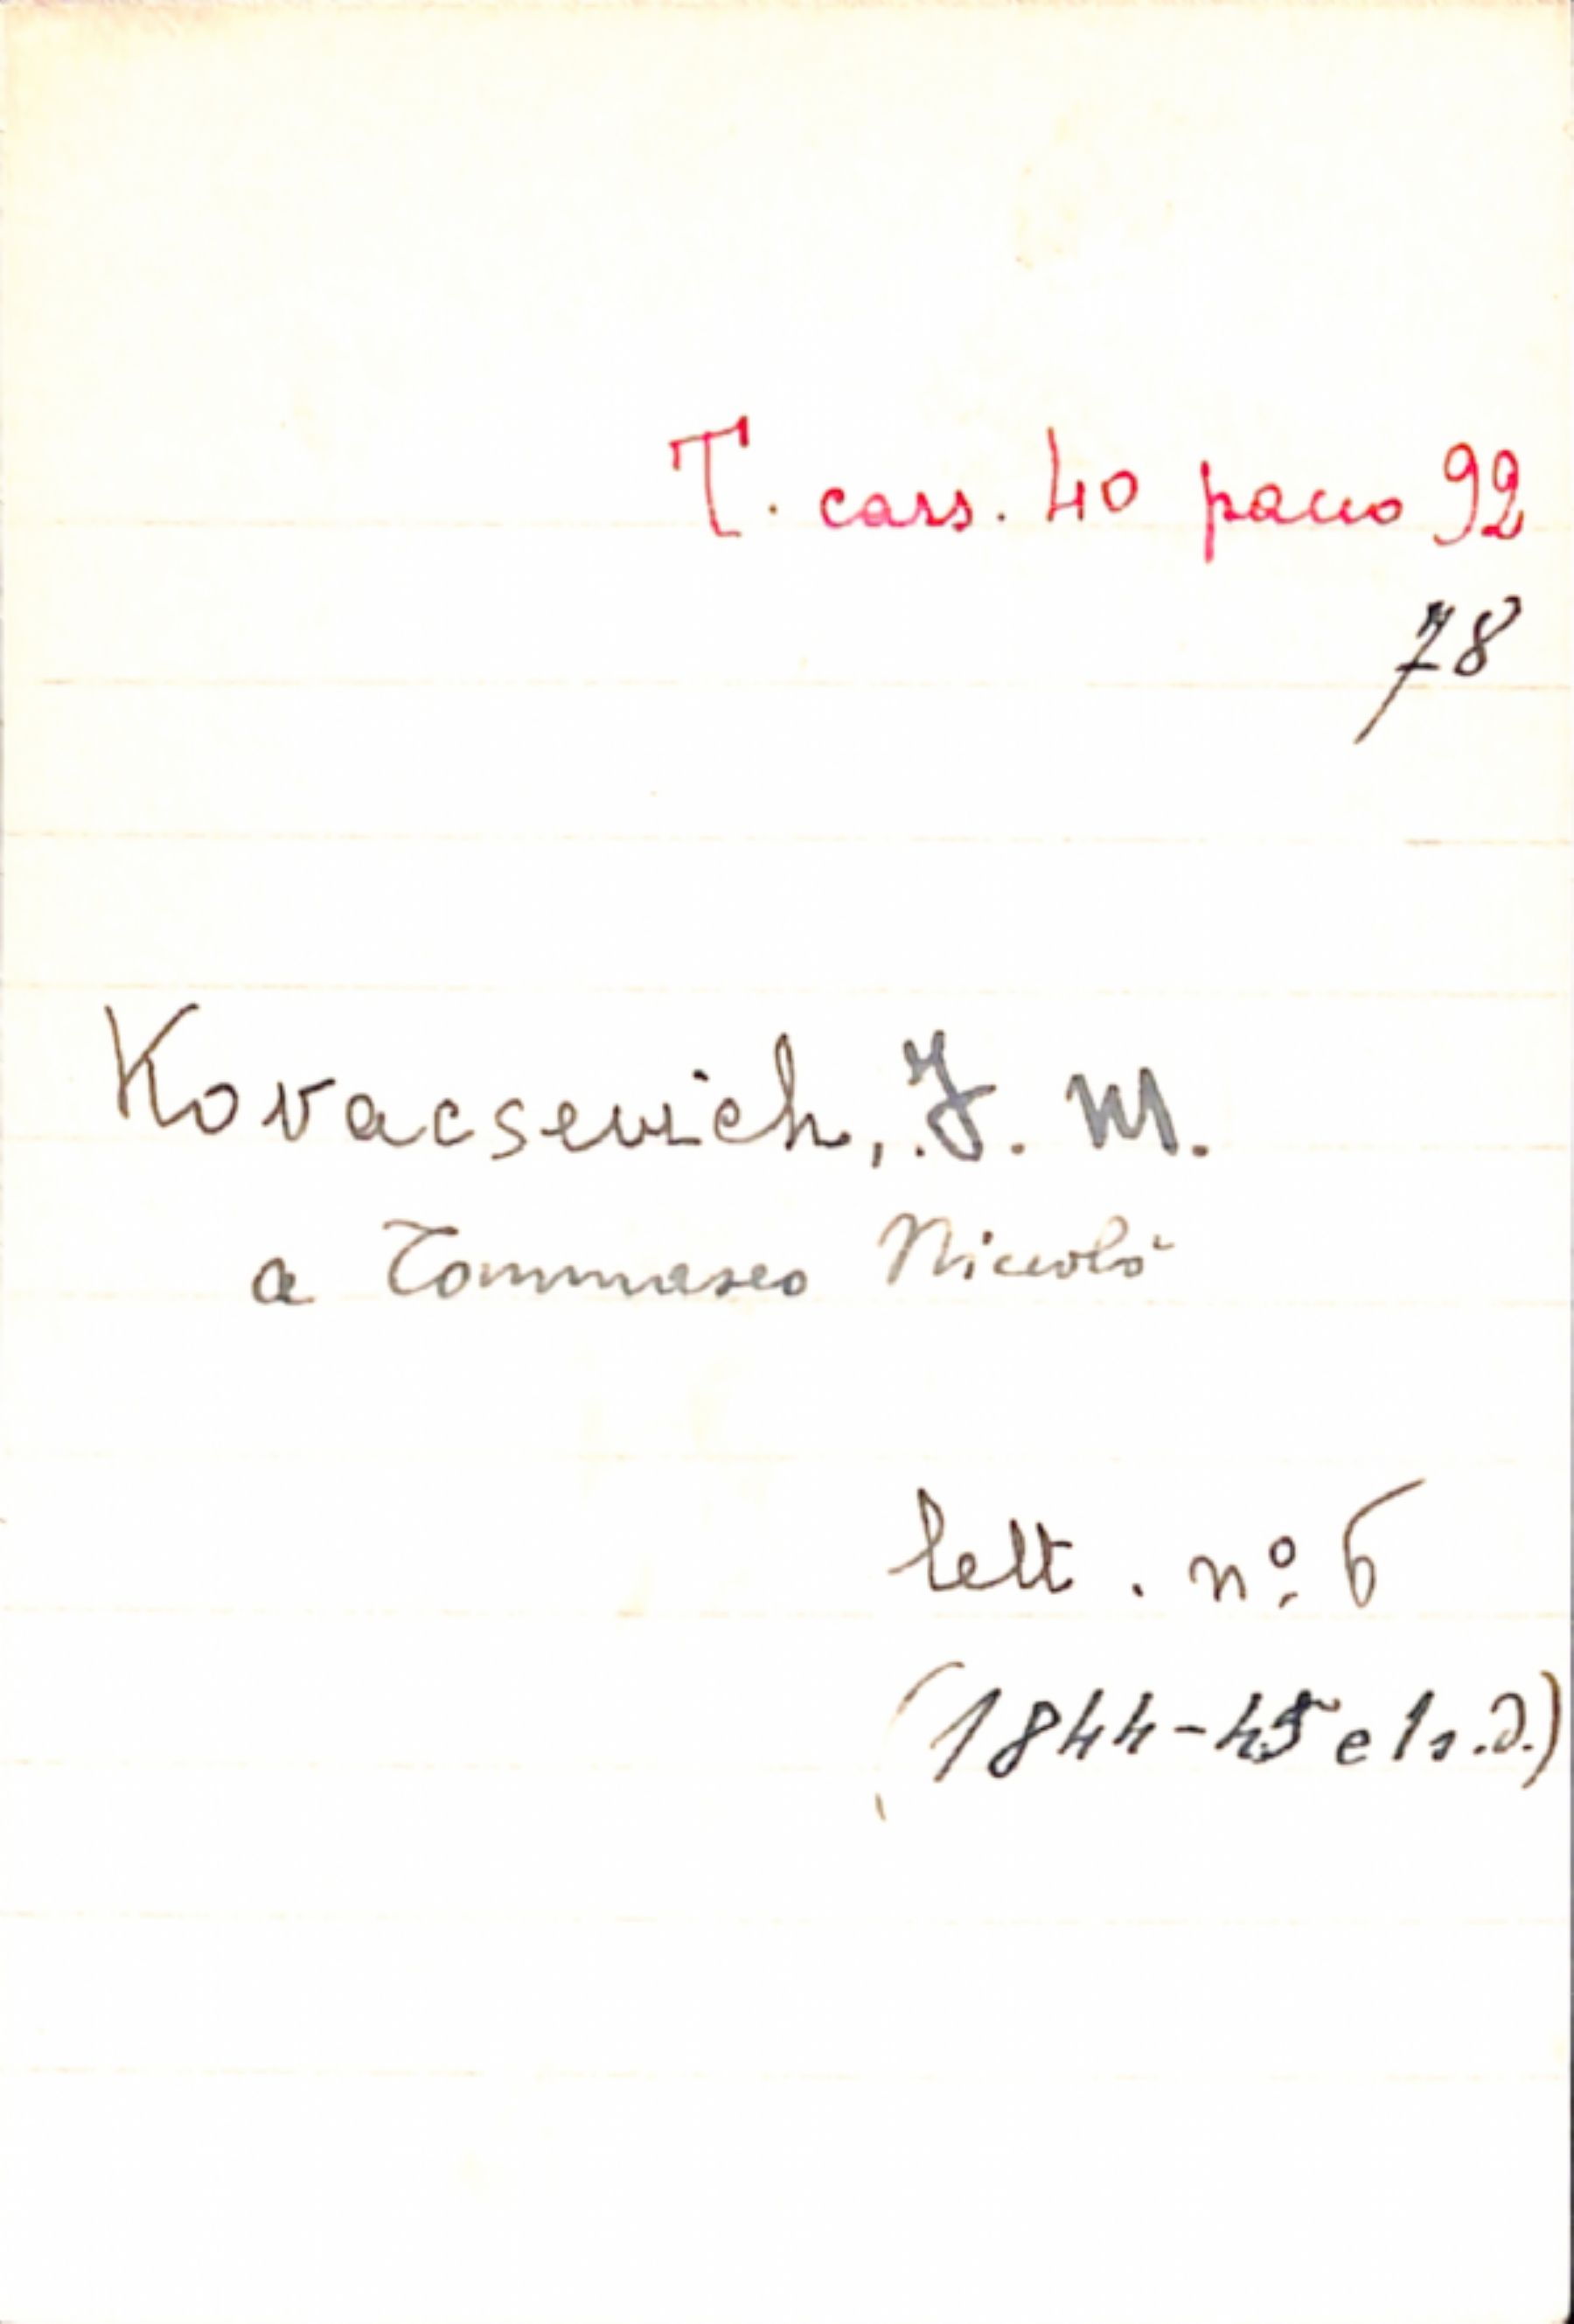 T. cass. 40 pacco 92
78
Kovacsevich, J. M.
a Tommaseo Niccolò
lett. nº 6
(1844-45 e 1 s.d.)